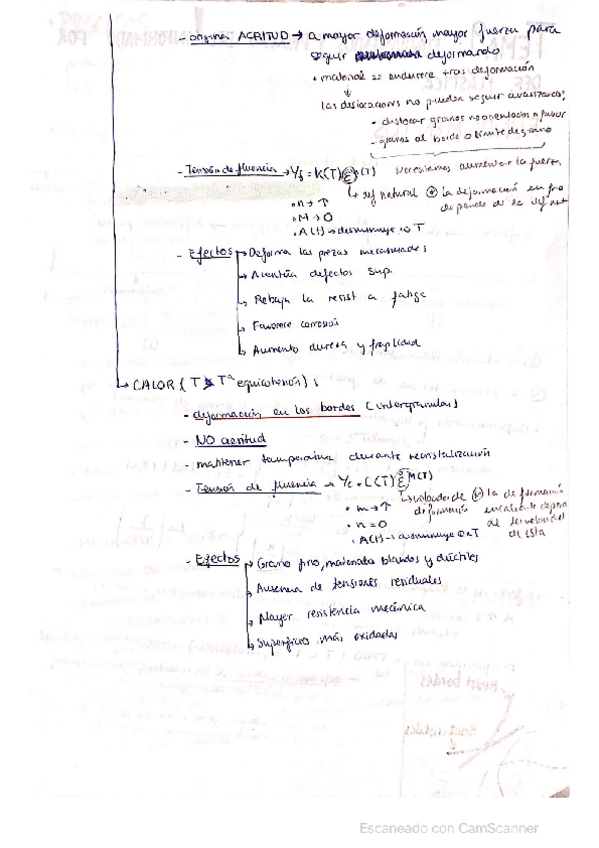 - origina ACRITUD → a mayor deformación mayor fuerza para
seguir deformando
• material se endurece tras deformación
↓
las dislocaciones no pueden seguir avanzando;
- dislocar granos no orientados a favor
- granos al borde o límite de grano
- Tensión de fluencia → Yf = K(T) ε^n(T) necesitamos aumentar la fuerza
↳ def natural ⊛ la deformación en frío
depende de la def nat
• n → ↑
• M → 0
• A(t) → disminuye si T
- Efectos → Deforma las piezas mecanizadas
→ Acentúa defectos sup.
→ Rebaja la resist a fatiga
→ Favorece corrosión
→ Aumento dureza y fragilidad
→ CALOR (T > Tª equicohesión):
- deformación en los bordes (intergranular)
- NO acritud
- mantener temperatura durante recristalización
- Tensión de fluencia → Yf = C(T) ε̇^M(T)
↳ velocidad de ⊛ la deformación
deformación en caliente depen
de de la velocidad
de esta
• m → ↑
• n = 0
• A(t) → disminuye si T
- Efectos → Grano fino, materiales blandos y dúctiles
→ Ausencia de tensiones residuales
→ Mayor resistencia mecánica
→ Superficies más oxidadas
Escaneado con CamScanner